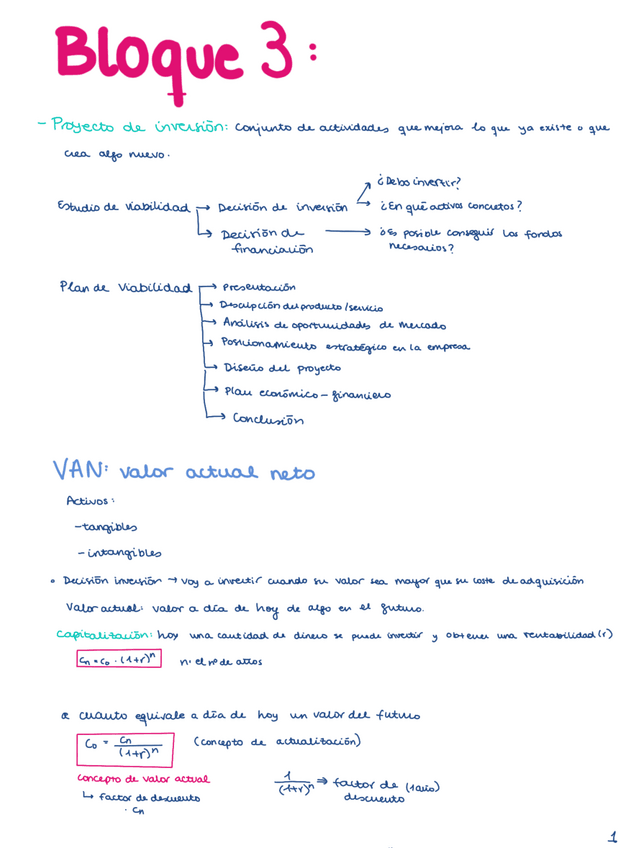 Bloque 3:
- Proyecto de inversión: conjunto de actividades que mejora lo que ya existe o que
crea algo nuevo.
¿Debo invertir?
Estudio de viabilidad → Decisión de inversión → ¿En qué activos concretos?
→ Decisión de financiación → ¿Es posible conseguir los fondos necesarios?
Plan de viabilidad → Presentación
→ Descripción del producto/servicio
→ Análisis de oportunidades de mercado
→ Posicionamiento estratégico en la empresa
→ Diseño del proyecto
→ Plan económico-financiero
→ Conclusión
VAN: valor actual neto
Activos:
- tangibles
- intangibles
• Decisión inversión → voy a invertir cuando su valor sea mayor que su coste de adquisición
Valor actual: valor a día de hoy de algo en el futuro.
Capitalización: hoy una cantidad de dinero se puede invertir y obtener una rentabilidad (r)
Cn = C0 · (1+r)^n n: el nº de años
a cuanto equivale a día de hoy un valor del futuro
C0 = Cn / (1+r)^n (concepto de actualización)
concepto de valor actual
↳ factor de descuento · Cn
1 / (1+r)^n ⇒ factor de descuento (1 año)
1